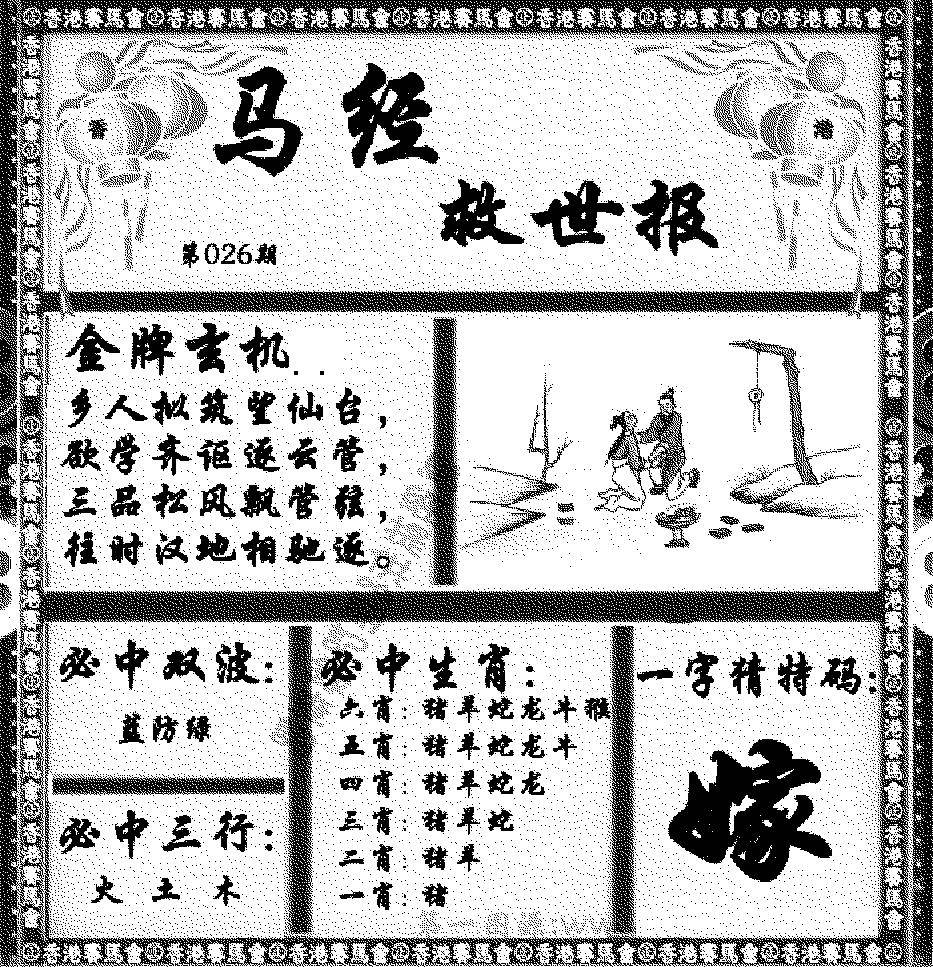 香港賽馬會香港賽馬會香港賽馬會香港賽馬會香港賽馬會香港賽馬會香港賽馬會
香
港
马经
救世报
第026期
金牌玄机..
乡人拟筑望仙台，
欲学齐讴逐云管，
三品松风飘管弦，
往时汉地相驰逐。
必中双波：
蓝防绿
必中三行：
火土木
必中生肖：
六肖：猪羊蛇龙牛猴
五肖：猪羊蛇龙牛
四肖：猪羊蛇龙
三肖：猪羊蛇
二肖：猪羊
一肖：猪
一字猜特码：
嫁
香港賽馬會香港賽馬會香港賽馬會香港賽馬會香港賽馬會香港賽馬會香港賽馬會